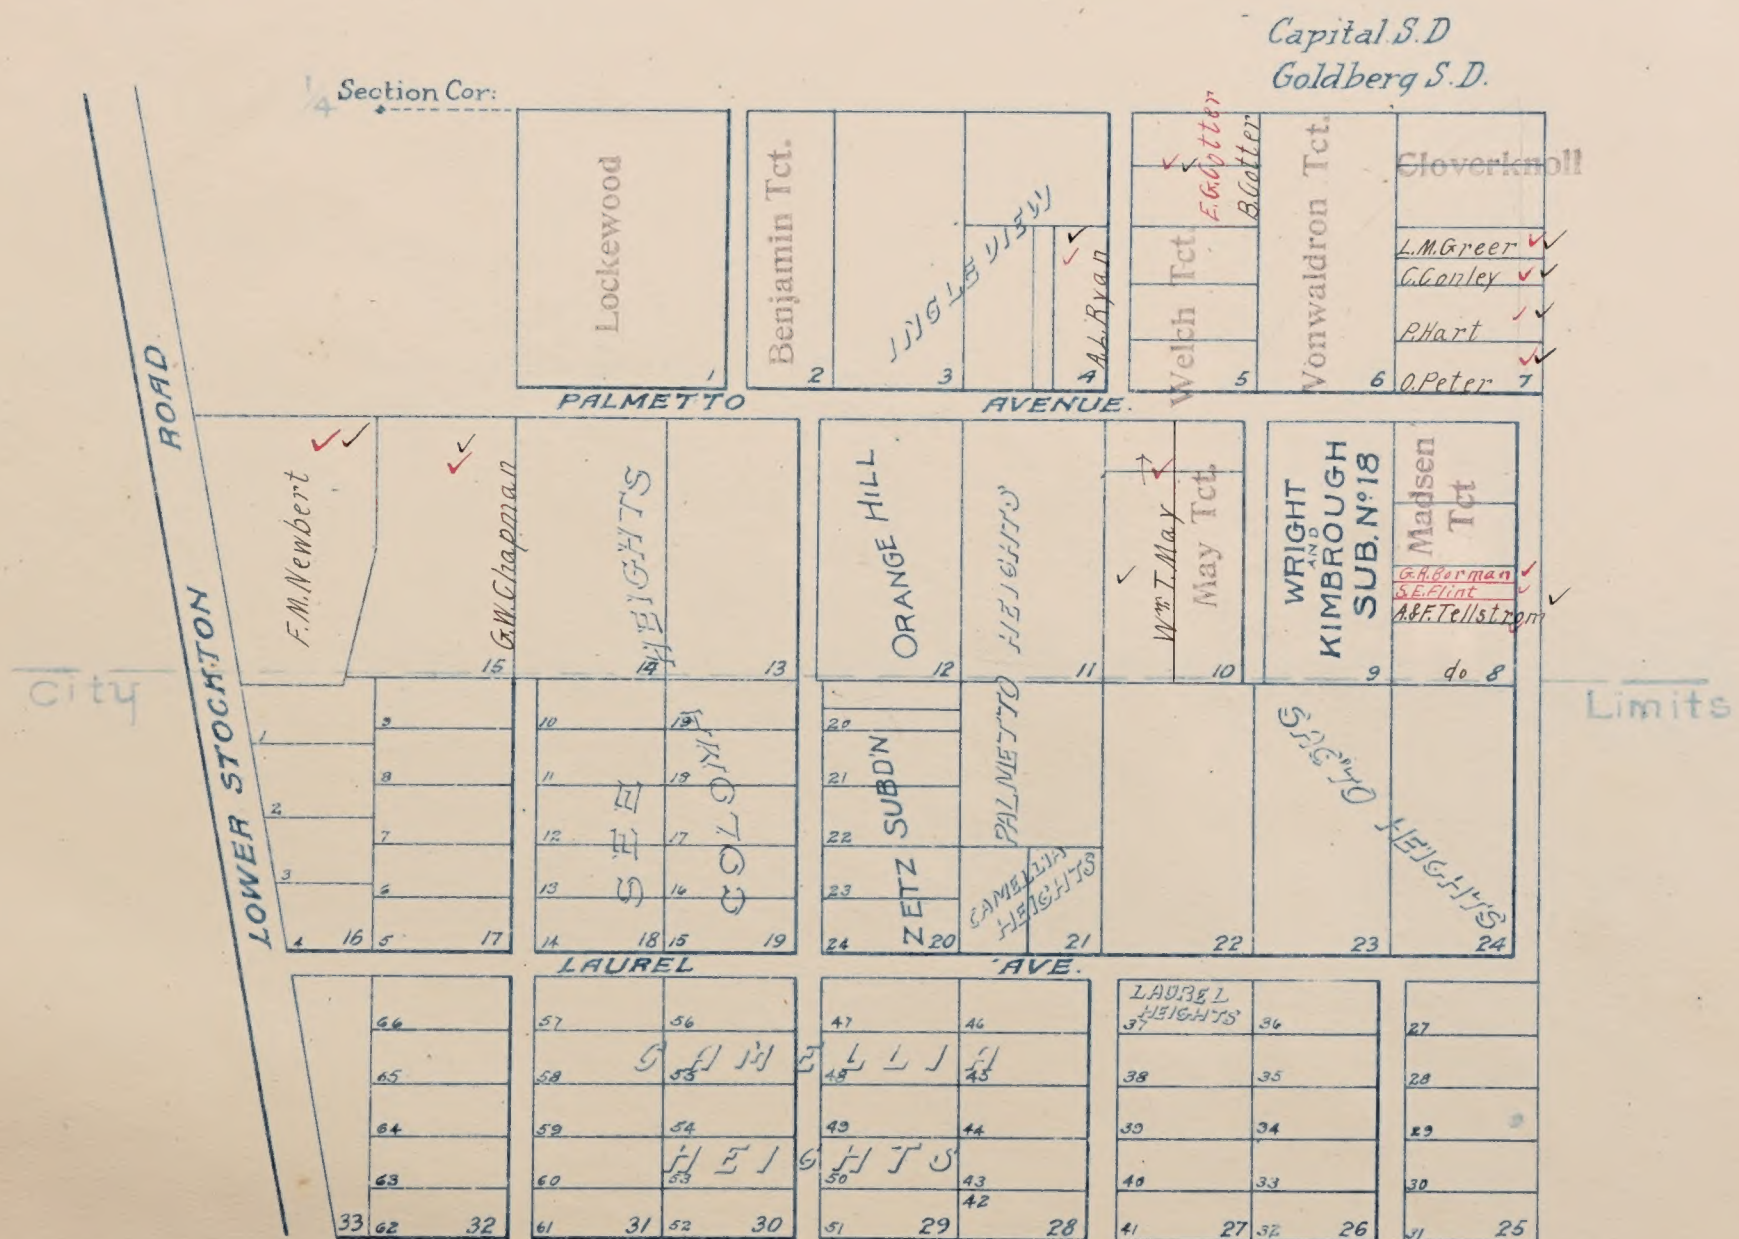 Capital S.D
Goldberg S.D.
1/4 Section Cor:
Lockewood
1
Benjamin Tct.
2
INGLEVIEW
3
A.L. Ryan
4
E.G. Cotter
B. Cotter
Welch Tct.
5
Vonwaldron Tct.
6
Cloverknoll
L.M. Greer
C. Conley
P. Hart
O. Peter 7
PALMETTO AVENUE.
LOWER STOCKTON ROAD
F.M. Newbert
G.W. Chapman
15
HEIGHTS
14
13
ORANGE HILL
12
PALMETTO HEIGHTS
11
Wm. T. May
May Tct.
10
WRIGHT
AND
KIMBROUGH
SUB. No 18
9
Madsen
Tct
G.R. Borman
S.E. Flint
A.&F. Tellstrom
do 8
City Limits
1
2
3
4 16
9
8
7
6
5 17
10
11
12
13
14 18
SEE
19
18
17
16
15 19
20
21
22
23
24 20
ZETZ SUBD'N
CAMELLIA
HEIGHTS
21
22
23
HEIGHTS
24
LAUREL AVE.
33
66
65
64
63
62 32
57
58
59
60
61 31
56
55
54
53
52 30
47
48
49
50
51 29
46
45
44
43
42
28
CAMELLIA
HEIGHTS
LAUREL
HEIGHTS
37
38
39
40
41 27
36
35
34
33
32 26
27
28
29
30
31 25